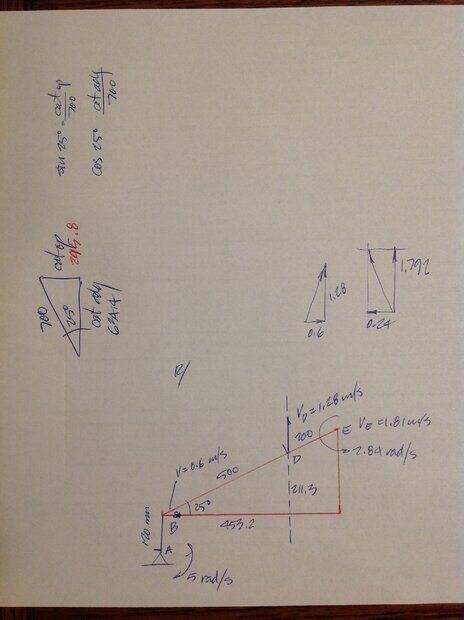 sin 25° = cat op / 700
cos 25° cat ady / 700
700
25°
cat op
295.8
cat ady
634.4
1.28
0.6
1.792
0.24
R/
V_D = 1.28 m/s
200
E V_E = 1.81 m/s
= 2.84 rad/s
V = 0.6 m/s
500
D
211.3
25°
B
453.2
120 mm
A
5 rad/s